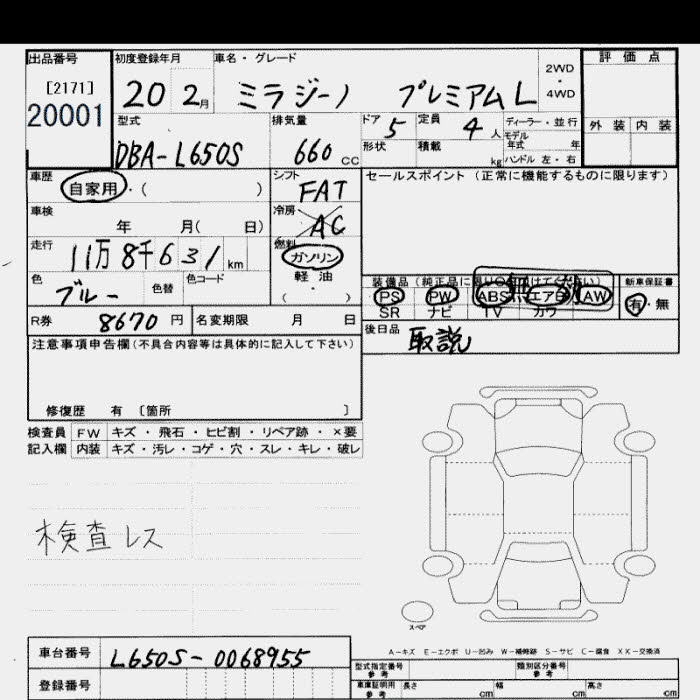 出品番号 初度登録年月 車名・グレード 評価点
[2171] 20 2月 ミラジーノ プレミアムL 2WD・4WD
20001 外装 内装
型式 排気量 ドア 定員 ディーラー・並行
DBA-L650S 660 CC 5 4人 モデル年式 年
形状 積載 kg ハンドル 左・右
車歴 シフト セールスポイント (正常に機能するものに限ります)
自家用・( ) FAT
車検 冷房
年 月( 日) AC
走行 燃料
11万8千631 km ガソリン
色 色替 色コード 軽・油
ブルー ( )
装備品 新車保証書
PS PW ABS エアB AW 有・無
SR ナビ TV カワ
R券 8670円 名変期限 月 日
後日品 取説
注意事項申告欄(不具合内容等は具体的に記入して下さい)
修復歴 有 〔箇所 〕
検査員 FW キズ・飛石・ヒビ割・リペア跡・×要
記入欄 内装 キズ・汚レ・コゲ・穴・スレ・キレ・破レ
検査レス
スペア
A-キズ E-エクボ U-凹み W-補修跡 S-サビ C-腐食 XX-交換済
車台番号 L650S-0068955
登録番号
型式指定番号 参考 類別区分番号 参考
車庫証明用 参考 長さ cm 幅 cm 高さ cm